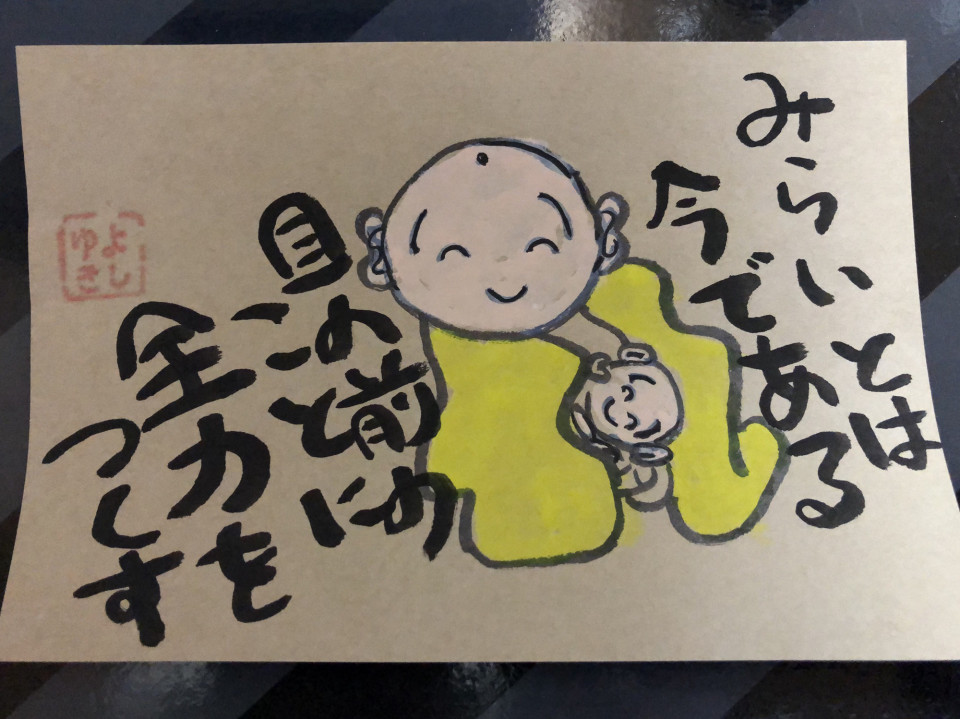 みらいとは
今である
目の前の
ことに
全力を
つくす
よし
ゆき